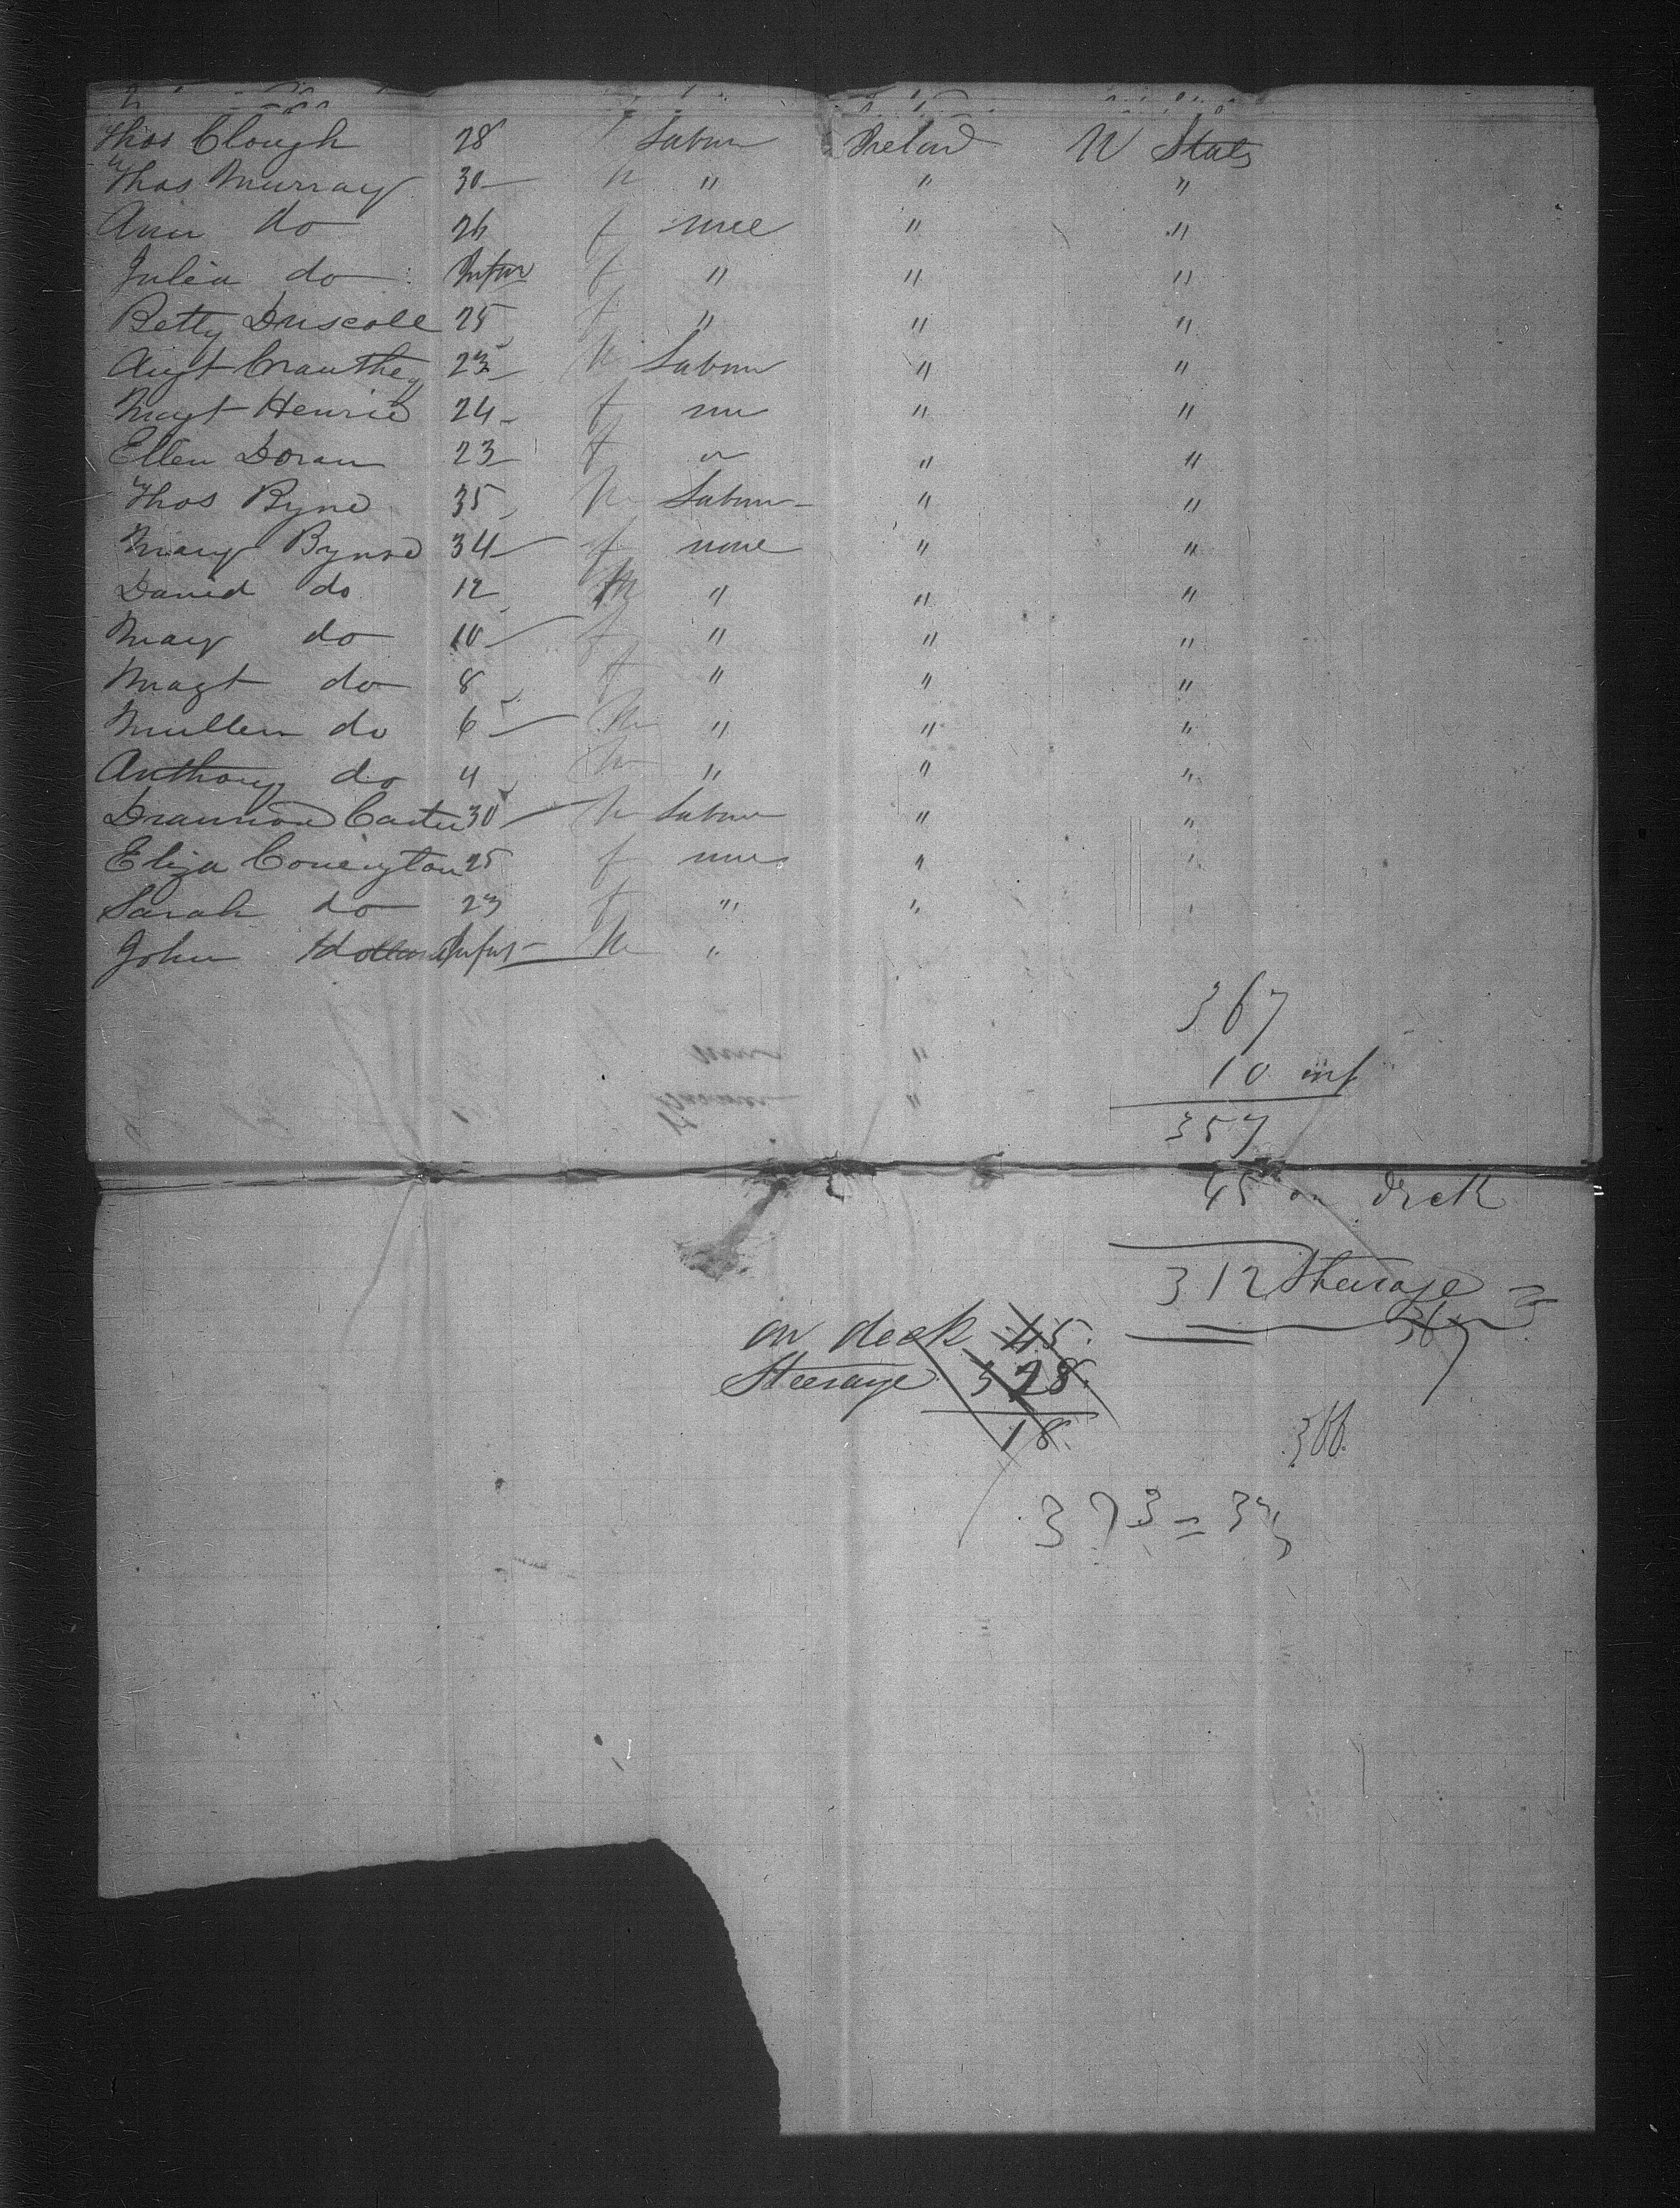 Thos Clough 28 Labour Ireland U States
Thos Murray 30 M " " "
Ann do 26 f none " "
Julia do Infan f " " "
Betty Driscoll 25 f " " "
23 M Labour " "
Magt Henrie 24 f " "
Ellen Doran 23 f " "
Thos Byne 35 M Labour " "
Mary Byrne 34 f none " "
David do 12 M " " "
Mary do 10 f " " "
Magt do 8 f " " "
Mullen do 6 M " " "
Anthony do 4 M " " "
Carter 30 M Labour " "
Eliza 25 f " "
Sarah do 23 f " "
John Inft M "
367
10 inf
357
45 on deck
312 Steerage
367
on deck 45
Steerage 328
18
366
373 =